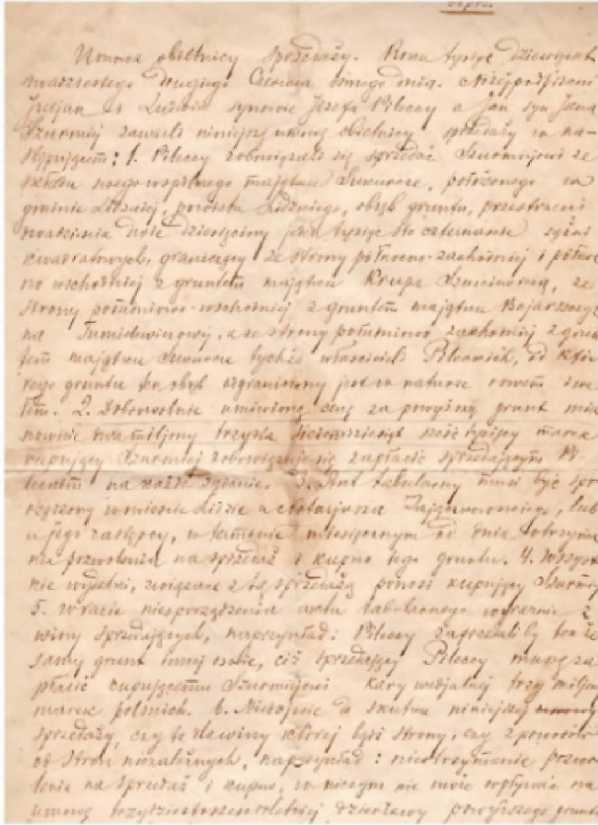 Umowa obietnicy sprzedaży. Roku tysiąc dziewięćset
dwadzieścia drugiego Czerwca ósmego dnia. Niżej podpisani
Juljan i Ludwik synowie Józefa Pileccy a Jan syn Jana
Szurmiej zawarli niniejszą umowę obietnicy sprzedaży w na-
stępującem: 1. Pileccy zobowiązali się sprzedać Szurmiejowi ze
składu swego wspólnego majątku Suwurce, położonego w
gminie Lidzkiej, powiatu Lidzkiego, obręb gruntu, przestrzeni
dziesięciny jeden tysiąc sto czternaście sążni
kwadratowych, graniczący ze strony północno-zachodniej i półno-
no wschodniej z gruntem majątku Krupa Szurmiejową, ze
strony południowo-wschodniej z gruntem majątku Bojarszczyz
na, a ze strony południowo zachodniej z grun
tem majątku Suwurce tychże właścicieli Pileckich, od któ-
rego gruntu ten obręb odgraniczony jest w naturze rowem i wa
łem. 2. Dobrowolnie umówioną cenę za powyższy grunt mia
nowicie dwa miljony trzysta sześć tysięcy marek
kupujący Szurmiej zobowiązuje się zapłacić sprzedającym Pi
leckim na każde żądanie. 3. Akt tabularny musi być spo
rządzony w mieście Lidzie u Notarjusza, lub
u jego zastępcy, w terminie miesięcznym od dnia otrzyma
nia pozwolenia na sprzedaż i kupno tego gruntu. 4. Wszyst
kie wydatki, związane z tą sprzedażą ponosi kupujący Szurmiej
5. W razie niesporządzenia aktu tabularnego wyraźnie z
winy sprzedających, naprzykład: Pileccy zaprzedaliby ten że
samy grunt innej osobie, ciż sprzedający Pileccy muszą za
płacić kupującemu Szurmiejowi kary trzy miljony
marek polskich. 6. Niedojście do skutku niniejszej umowy
sprzedaży, czy to z winy której bądź strony, czy z powodów
od stron niezależnych, naprzykład: nieotrzymanie pozwo
lenia na sprzedaż i kupno, w niczem nie może wpływać na
umowę dzierżawy powyższego gruntu